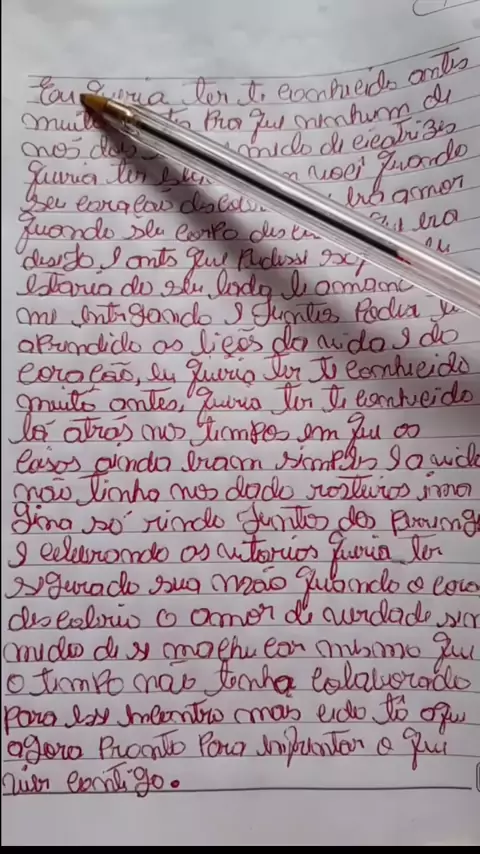 Eu queria ter ti conhecido antes
muito pra qui ninhum di
nós do mido di cicatrizis
quiria ter voci quando
seu coração era amor
quando seu corpo era
disejo I ants qui pudessi eu
estaria do seu lado
mi intrigando I juntos
aprindido as liçõs da vida I do
coração, eu quiria ter ti conhecido
muito antes, quiria ter ti conhecido
lá atrás nos timpos em qui as
coisas ainda eram simplis I a vida
não tinha nos dado rastiros ima
gina só rindo juntos dos
I celebrando as vitorias quiria ter
sigurado sua mão quando o cora
discobrio o amor di verdade sem
mido di si machucar mismo qui
o timpo não tenha colaborado
para essi incontro mas eu tô aqui
agora pronto para infrintar o qui
vier contigo.